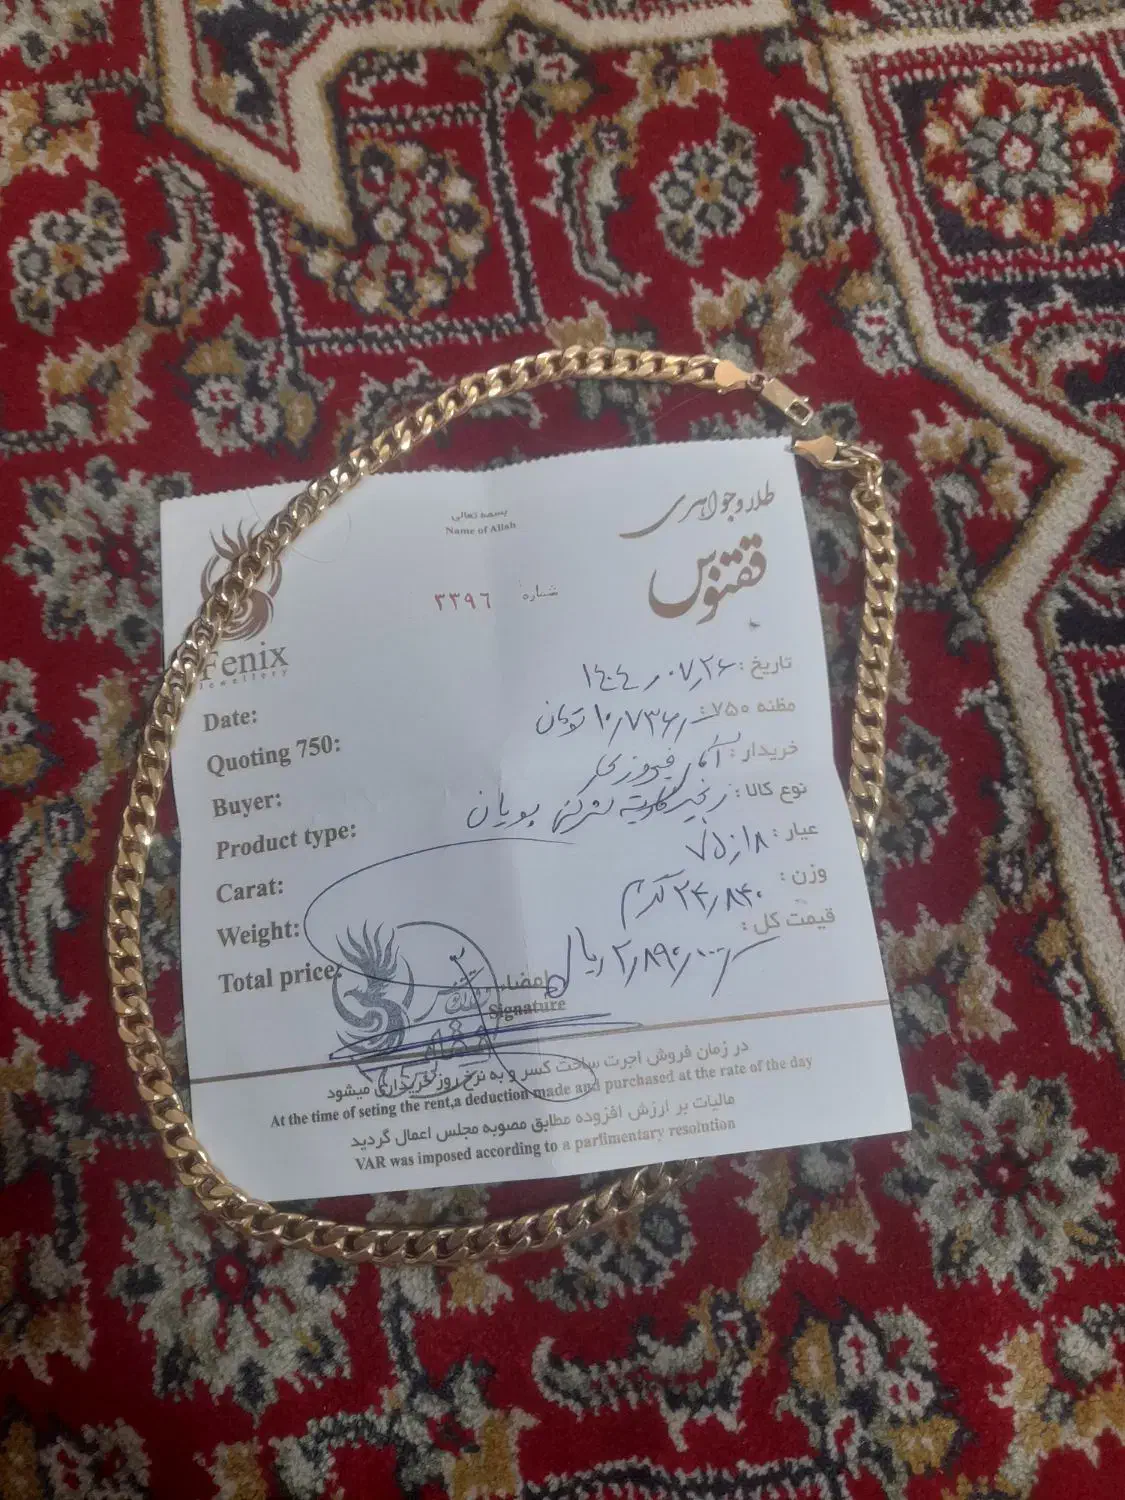 بسمه تعالی
Name of Allah
طلا و جواهری
ققنوس
شماره ۳۳۹۶
Fenix
Jewellery
تاریخ: ۱۴۰۴٫۰۷٫۲۶
Date:
مظنه ۷۵۰: ۱۰٫۷۳۶٫ تومان
Quoting 750:
خریدار: آقای فیروزی
Buyer:
نوع کالا: زنجیر کارتیه پویان
Product type:
عیار: ۱۸ از ۷۵
Carat:
وزن: ۲۴٫۸۴۰ گرم
Weight:
قیمت کل: ریال
Total price:
امضاء
Signature
در زمان فروش اجرت ساخت کسر و به نرخ روز خریداری میشود
At the time of seting the rent,a deduction made and purchased at the rate of the day
مالیات بر ارزش افزوده مطابق مصوبه مجلس اعمال گردید
VAR was imposed according to a parlimentary resolution